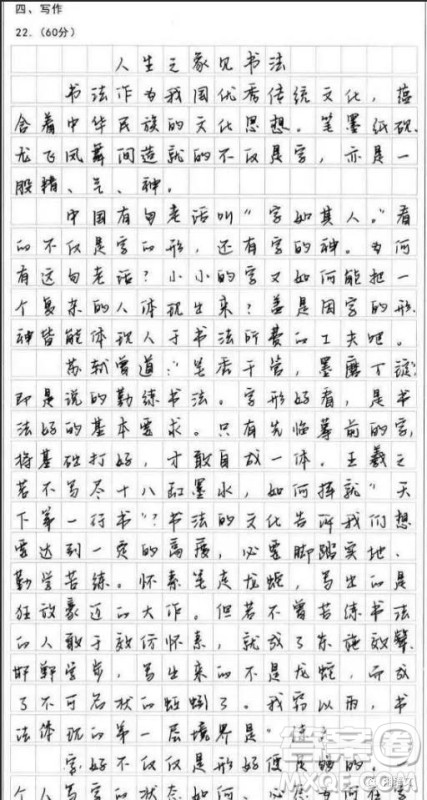 四、写作
22.（60分）
人生之象见书法
书法作为我国优秀传统文化，蕴
含着中华民族的文化思想。笔墨纸砚，
龙飞凤舞间造就的不仅是字，亦是一
股精、气、神。
中国有句老话叫“字如其人。”看
的不仅是字的形，还有字的神。为何
有这句老话？小小的字又如何能把一
个复杂的人体现出来？盖是因字的形
神皆能体现人于书法所费的工夫吧。
苏轼曾道：“笔秃千管，墨磨万锭”
即是说的勤练书法。字形好看，是书
法好的基本要求。只有先临摹前的字，
将基础打好，才敢自成一体。王羲之
若不写尽十八缸墨水，如何挥就“天
下第一行书”？书法的文化告诉我们想
要达到一定的高度，必要脚踏实地、
勤学苦练。怀素笔走龙蛇，写出的是
狂放豪迈的大作。但若不曾苦练书法
的人敢于效仿怀素，就成了东施效颦，
邯郸学步，写出来的不是龙蛇，而成
了不可名状的蚯蚓了。我窃以为，书
法体现的第一层境界是“练”。
字好不仅仅是形好便足够的。
个人写字的状态如何、必